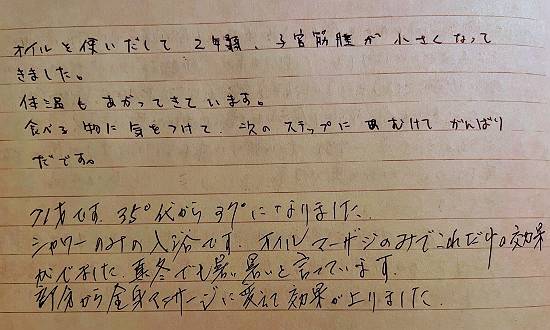 オイルを使いだして 2年弱、子宮筋腫が 小さくなって
きました。
体温も あがってきています。
食べる物に気をつけて、次のステップに
だです。
71才です。35°代から37°になりました。
シャワーのみの入浴です。オイルマッサージのみでこれだけの効果
がでました。真冬でも暑い暑いと言っています。
部分から全身マッサージに変えて効果が上りました。